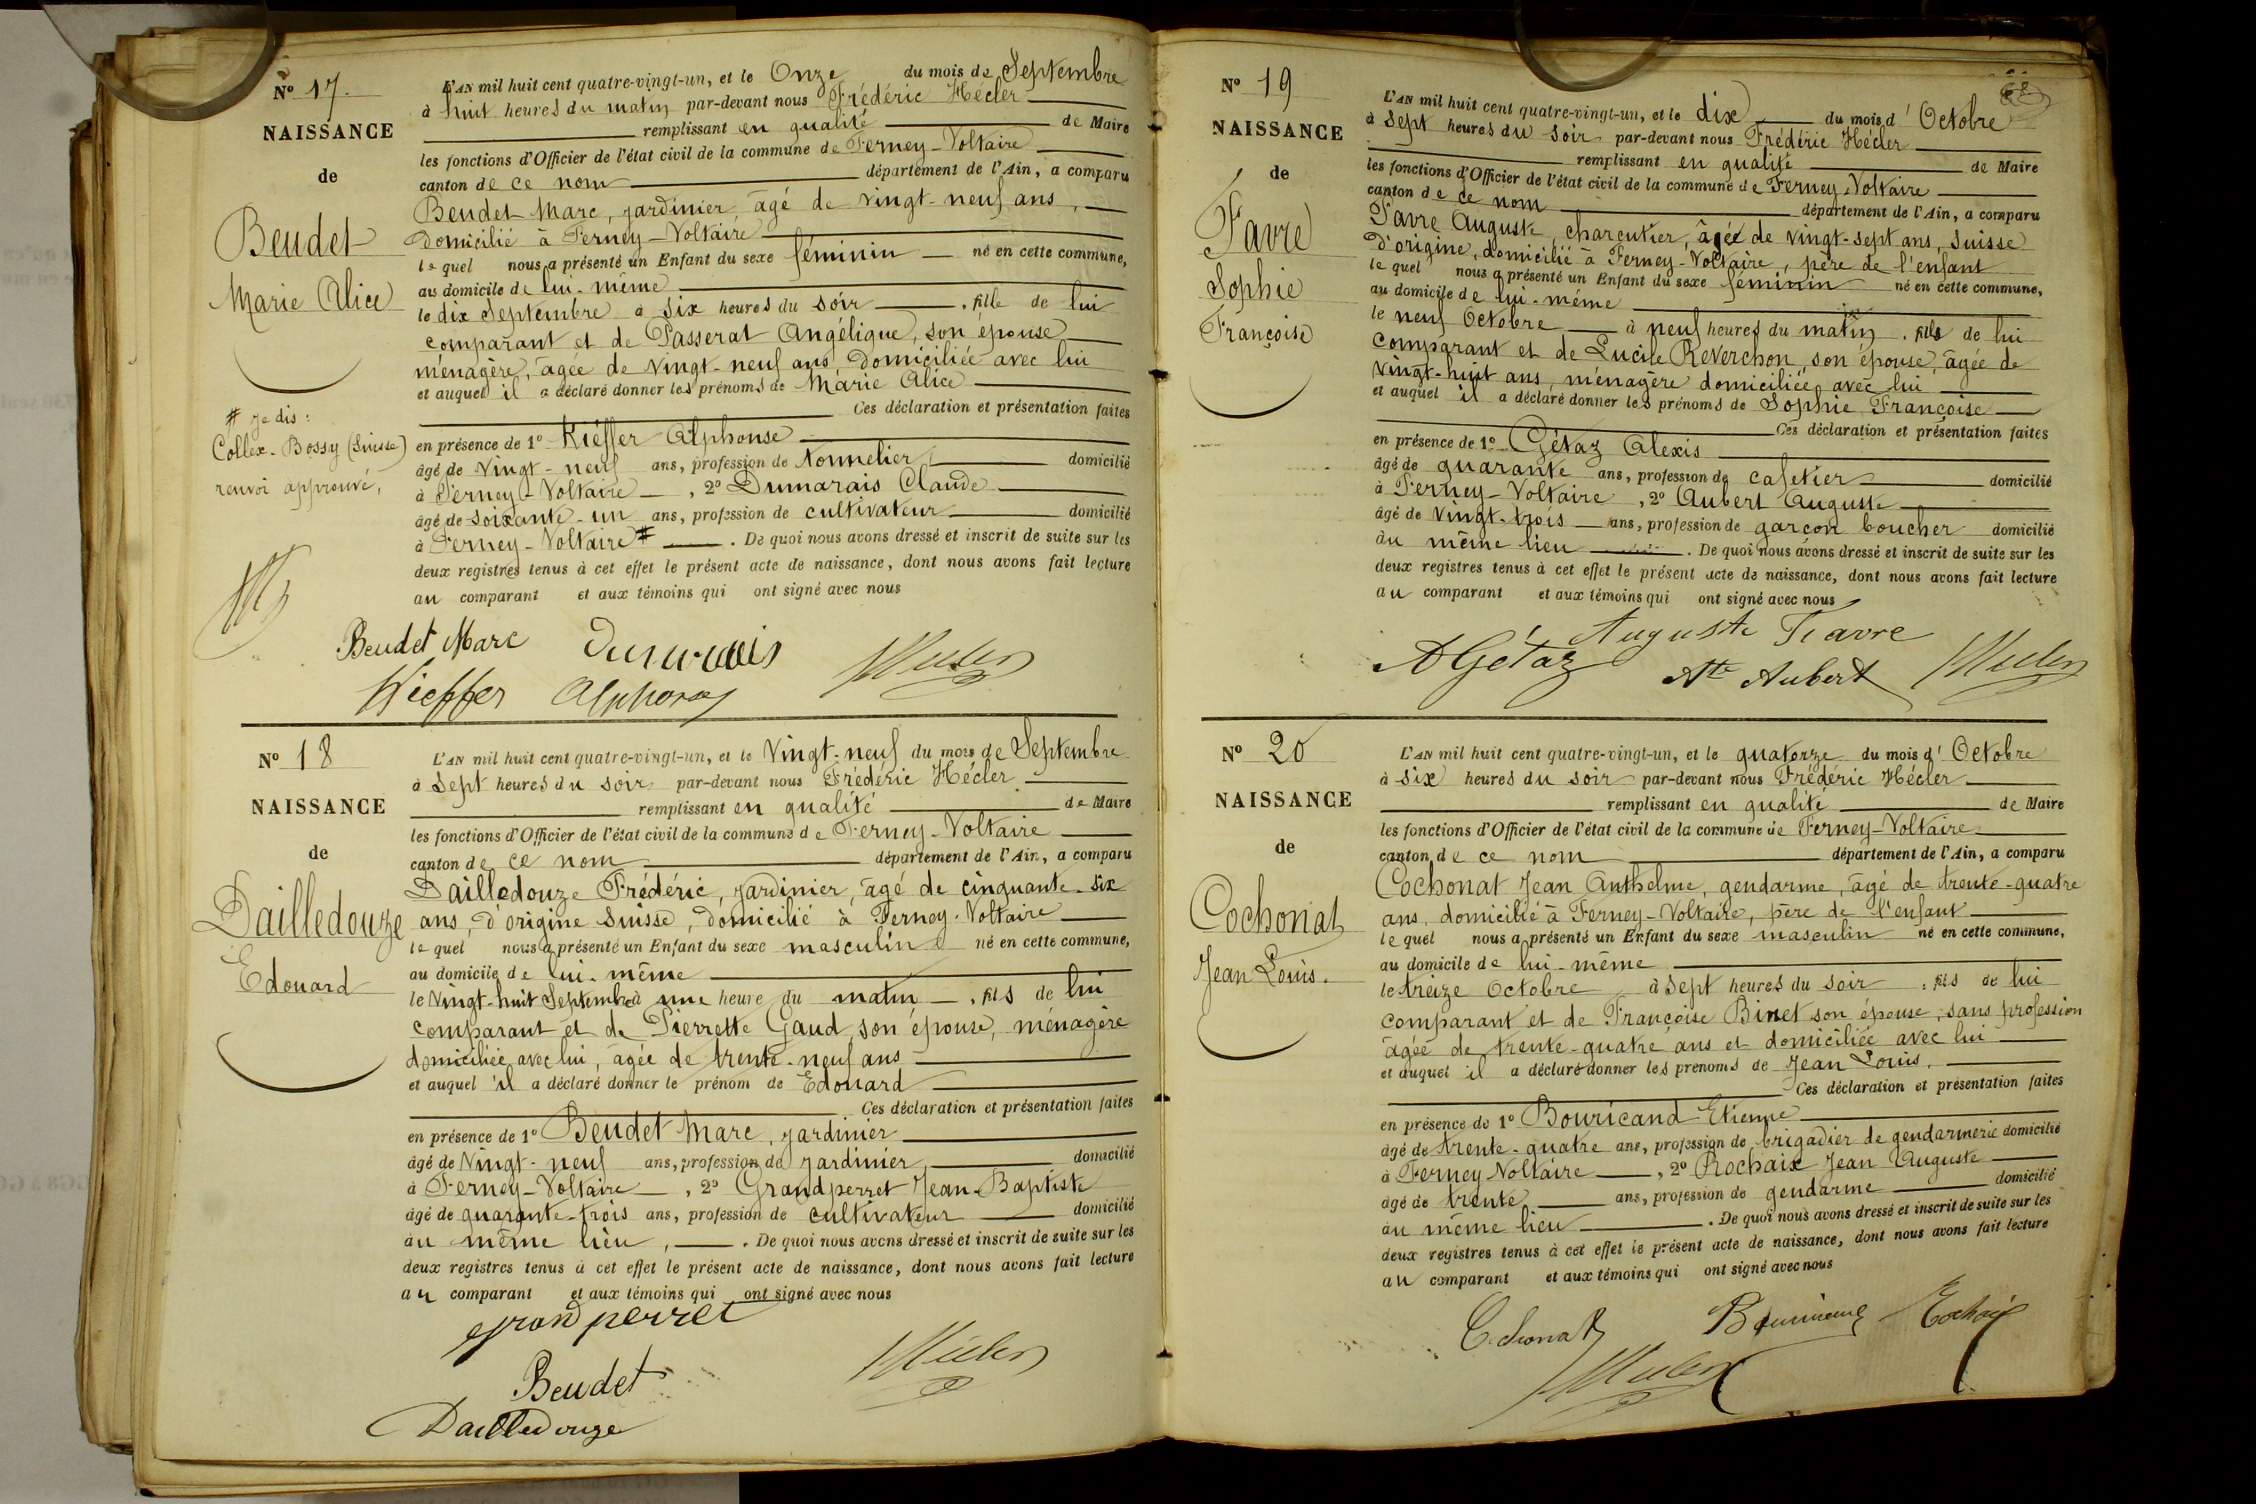 N° 17.
NAISSANCE
de
Beudet
Marie Alice
L'AN mil huit cent quatre-vingt-un, et le Onze du mois de Septembre
à huit heures du matin par-devant nous Frédéric Hécler
remplissant en qualité de Maire
les fonctions d'Officier de l'état civil de la commune de Ferney-Voltaire
canton de ce nom département de l'Ain, a comparu
Beudet Marc, jardinier, âgé de vingt-neuf ans,
domicilié à Ferney-Voltaire
le quel nous a présenté un Enfant du sexe féminin né en cette commune,
au domicile de lui-même
le dix Septembre à six heures du soir, fille de lui
comparant et de Passerat Angélique, son épouse
ménagère, âgée de vingt-neuf ans domiciliée avec lui
et auquel il a déclaré donner les prénoms de Marie Alice
Ces déclaration et présentation faites
en présence de 1° Kieffer Alphonse
âgé de vingt-neuf ans, profession de tonnelier domicilié
à Ferney-Voltaire, 2° Dumarais Claude
âgé de soixante-un ans, profession de cultivateur domicilié
à Ferney-Voltaire #. De quoi nous avons dressé et inscrit de suite sur les
deux registres tenus à cet effet le présent acte de naissance, dont nous avons fait lecture
au comparant et aux témoins qui ont signé avec nous
# je dis :
Collex-Bossy (Suisse)
renvoi approuvé,
Beudet Marc Dumarais
Kieffer Alphonse
N° 18
NAISSANCE
de
Dailledouze
Edouard
L'AN mil huit cent quatre-vingt-un, et le Vingt-neuf du mois de Septembre
à Sept heures du soir par-devant nous Frédéric Hécler
remplissant en qualité de Maire
les fonctions d'Officier de l'état civil de la commune de Ferney-Voltaire
canton de ce nom département de l'Ain, a comparu
Dailledouze Frédéric, jardinier, âgé de cinquante-six
ans, d'origine Suisse, domicilié à Ferney-Voltaire
le quel nous a présenté un Enfant du sexe masculin né en cette commune,
au domicile de lui-même
le Vingt-huit Septembre à une heure du matin, fils de lui
comparant et de Pierrette Gaud, son épouse, ménagère
domiciliée avec lui, âgée de trente-neuf ans
et auquel il a déclaré donner le prénom de Edouard
Ces déclaration et présentation faites
en présence de 1° Beudet Marc, jardinier
âgé de Vingt-neuf ans, profession de jardinier domicilié
à Ferney-Voltaire, 2° Grandperret Jean-Baptiste
âgé de quarante-trois ans, profession de cultivateur domicilié
au même lieu,. De quoi nous avons dressé et inscrit de suite sur les
deux registres tenus à cet effet le présent acte de naissance, dont nous avons fait lecture
au comparant et aux témoins qui ont signé avec nous
grandperret
Beudet
Dailledouze
N° 19
NAISSANCE
de
Favre
Sophie
Françoise
L'AN mil huit cent quatre-vingt-un, et le dix du mois d'Octobre
à Sept heures du soir par-devant nous Frédéric Hécler
remplissant en qualité de Maire
les fonctions d'Officier de l'état civil de la commune de Ferney-Voltaire
canton de ce nom département de l'Ain, a comparu
Favre Auguste, charcutier, âgée de vingt-sept ans, Suisse
d'origine, domicilié à Ferney-Voltaire, père de l'enfant
le quel nous a présenté un Enfant du sexe féminin né en cette commune,
au domicile de lui-même
le neuf Octobre à neuf heures du matin, fille de lui
comparant et de Lucile Reverchon, son épouse, âgée de
vingt-huit ans, ménagère domiciliée avec lui
et auquel il a déclaré donner les prénoms de Sophie Françoise
Ces déclaration et présentation faites
en présence de 1° Gétaz Alexis
âgé de quarante ans, profession de cafetier domicilié
à Ferney-Voltaire, 2° Aubert Auguste
âgé de vingt-trois ans, profession de garçon boucher domicilié
au même lieu. De quoi nous avons dressé et inscrit de suite sur les
deux registres tenus à cet effet le présent acte de naissance, dont nous avons fait lecture
au comparant et aux témoins qui ont signé avec nous
Auguste Favre
A Gétaz Ate Aubert
N° 20
NAISSANCE
de
Cochonat
Jean Louis.
L'AN mil huit cent quatre-vingt-un, et le quatorze du mois d'Octobre
à six heures du soir par-devant nous Frédéric Hécler
remplissant en qualité de Maire
les fonctions d'Officier de l'état civil de la commune de Ferney-Voltaire
canton de ce nom département de l'Ain, a comparu
Cochonat Jean Anthelme, gendarme, âgé de trente-quatre
ans, domicilié à Ferney-Voltaire, père de l'enfant
le quel nous a présenté un Enfant du sexe masculin né en cette commune,
au domicile de lui-même
le treize Octobre à sept heures du soir, fils de lui
comparant et de Françoise Binet son épouse, sans profession
âgée de trente-quatre ans et domiciliée avec lui
et auquel il a déclaré donner les prénoms de Jean Louis.
Ces déclaration et présentation faites
en présence de 1° Bouricand Etienne
âgé de trente-quatre ans, profession de brigadier de gendarmerie domicilié
à Ferney Voltaire, 2° Rochaix Jean Auguste
âgé de trente ans, profession de gendarme domicilié
au même lieu. De quoi nous avons dressé et inscrit de suite sur les
deux registres tenus à cet effet le présent acte de naissance, dont nous avons fait lecture
au comparant et aux témoins qui ont signé avec nous
Cochonat Rochaix